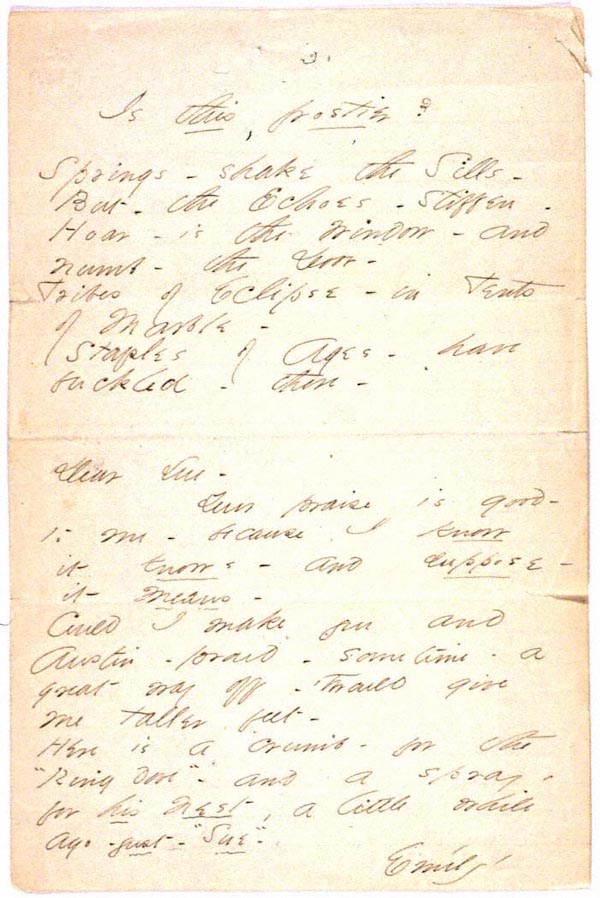 3.
Is this, frostier?
Springs - shake the Sills -
But - the Echoes - stiffen -
Hoar - is the Window - and
numb - the Door -
Tribes of Eclipse - in Tents
of Marble -
Staples of Ages - have
buckled - there -
Dear Sue -
Your praise is good -
to me - because I know
it knows - and suppose -
it means -
Could I make you and
Austin - proud - sometime - a
great way off - 'twould give
me taller feet -
Here is a crumb - for the
"Ring dove" - and a spray
for his Nest, a little while
ago - just - "Sue" -
Emily